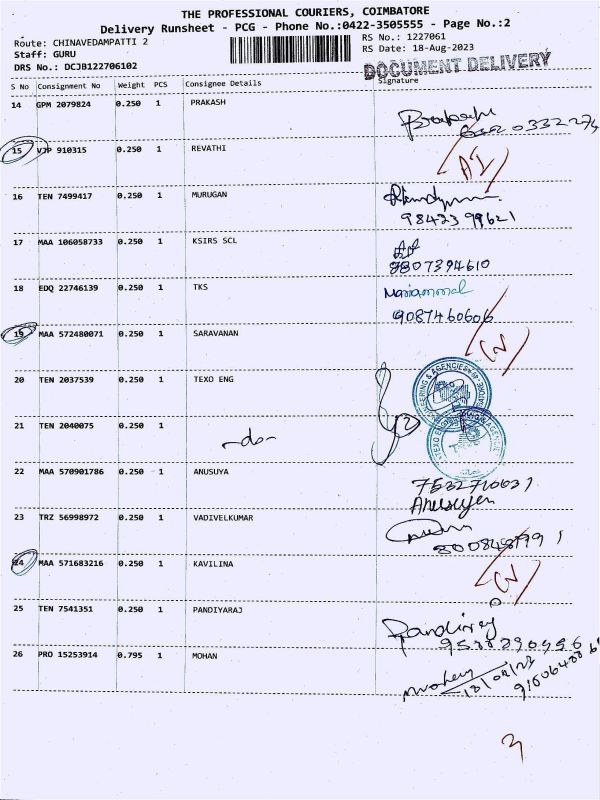 THE PROFESSIONAL COURIERS, COIMBATORE
Delivery Runsheet - PCG - Phone No.:0422-3505555 - Page No.:2
Route: CHINAVEDAMPATTI 2
Staff: GURU
DRS No.: DCJB122706102
RS No.: 1227061
RS Date: 18-Aug-2023
DOCUMENT DELIVERY
S No Consignment No Weight PCS Consignee Details Signature
14 GPM 2079824 0.250 1 PRAKASH
15 VJP 910315 0.250 1 REVATHI
16 TEN 7499417 0.250 1 MURUGAN
9842399621
17 MAA 106058733 0.250 1 KSIRS SCL
9807394610
18 EDQ 22746139 0.250 1 TKS
Mariammal
9087460606
19 MAA 572480071 0.250 1 SARAVANAN
20 TEN 2037539 0.250 1 TEXO ENG
21 TEN 2040075 0.250 1
-do-
22 MAA 570901786 0.250 1 ANUSUYA
7532710631
23 TRZ 56998972 0.250 1 VADIVELKUMAR
24 MAA 571683216 0.250 1 KAVILINA
25 TEN 7541351 0.250 1 PANDIYARAJ
26 PRO 15253914 0.795 1 MOHAN
18/08/23
3